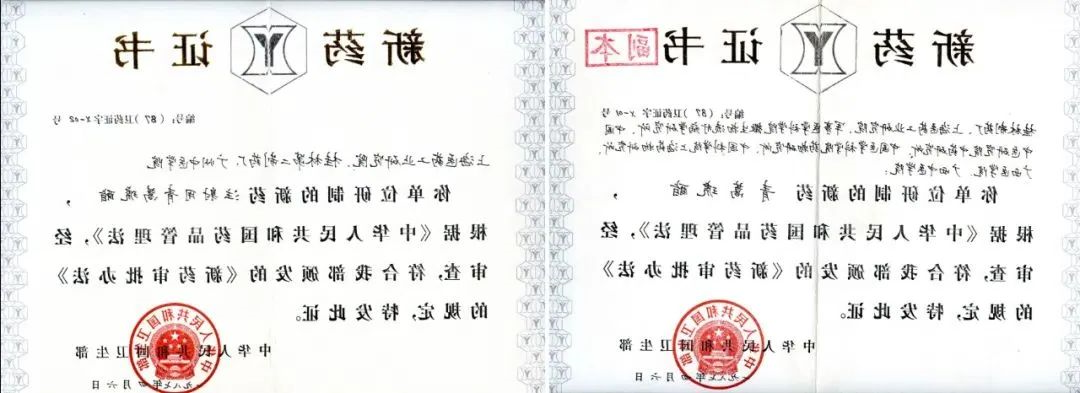 新药证书
副本
编号：（87）卫药证字X-01号
桂林制药厂、上海医药工业研究院、军事医学科学院微生物流行病学研究所、中国
中医研究院中药研究所、中国医学科学院药物研究所、中国科学院上海药物研究所、
广西中医学院、广西医学院：
你单位研制的新药 青蒿琥酯，
根据《中华人民共和国药品管理法》，经
审查，符合我部颁发的《新药审批办法》
的规定，特发此证。
中华人民共和国卫生部
一九八七年四月六日
新药证书
编号：（87）卫药证字X-02号
上海医药工业研究院、桂林第二制药厂、广州中医学院：
你单位研制的新药 注射用青蒿琥酯，
根据《中华人民共和国药品管理法》，经
审查，符合我部颁发的《新药审批办法》
的规定，特发此证。
中华人民共和国卫生部
一九八七年四月六日